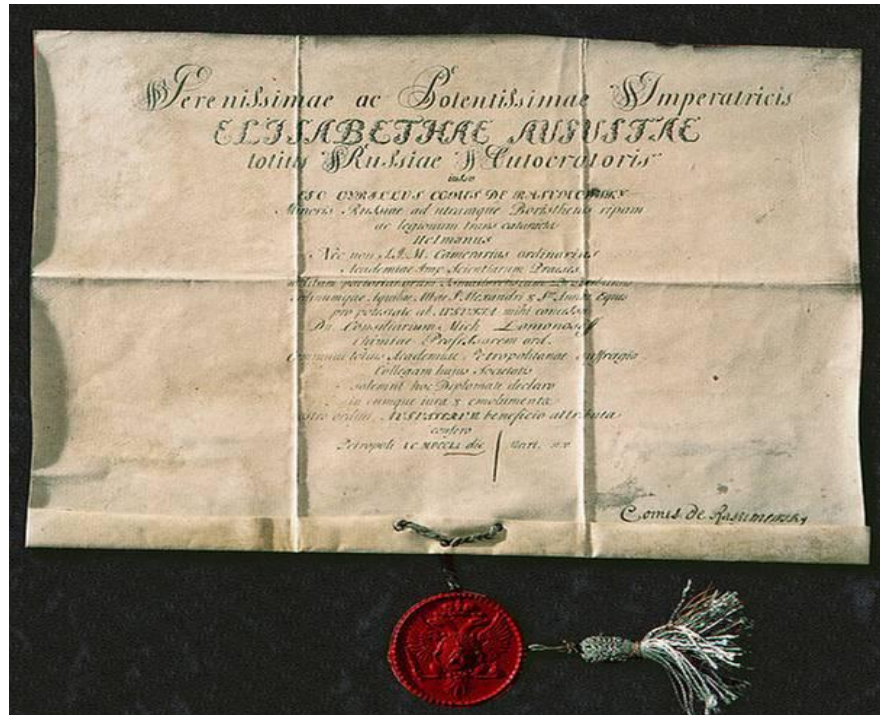 Serenissimae ac Potentissimae Imperatricis
ELISABETHAE AUGUSTAE
totius Russiae Autocratoris
iussu
EGO CYRILLUS COMES DE RASUMOWSKY
Minoris Russiae ad utramque Boristhenis ripam
ac legionum trans cataracta
Hetmanus
Nec non S.I.M. Camerarius ordinarius
Academiae Imp. Scientiarum Praeses
ordinumque Aquilae Albae S. Alexandri & Stae Annae Eques
pro potestate ab AUGUSTA mihi concessa
Dn. Consiliarium Mich Lomonosoff
Chimiae Professorem ord.
Communi totius Academiae Petropolitanae suffragio
Collegam hujus Societatis
solemni hoc Diplomate declaro
in eumque iura & emolumenta
ordini AUGUSTARUM beneficio attributa
confero
Petropoli die
Comes de Rasumowsky